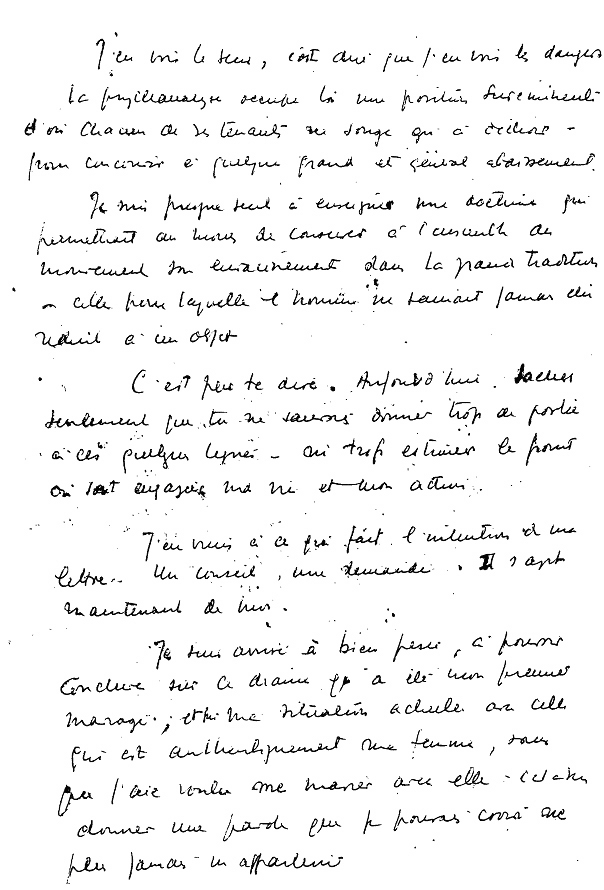 J'en vois le sens, c'est dire que j'en vois les dangers
La psychanalyse occupe ici une position suréminente
d'où chacun de ses tenants ne songe qu'à déchoir –
pour concourir à quelque grand et général abaissement.
Je suis presque seul à enseigner une doctrine qui
permettrait au moins de conserver à l'ensemble du
mouvement son enracinement dans la grande tradition
– celle pour laquelle l'homme ne saurait jamais être
réduit à un objet
C'est peu te dire. Aujourd'hui. Sache
seulement que tu ne saurais donner trop de portée
à ces quelques lignes – ni trop estimer le point
où sont engagées ma vie et mon action.
J'en viens à ce qui fait l'intention de ma
lettre. Un conseil, une demande. Il s'agit
maintenant de moi.
Je suis arrivé à bien peser, à pouvoir
conclure sur ce drame qu'a été mon premier
mariage ; et sur ma situation actuelle avec celle
qui est authentiquement ma femme, sans
que j'aie voulu me marier avec elle –
donner une parole que je pouvais croire ne
plus jamais m'appartenir